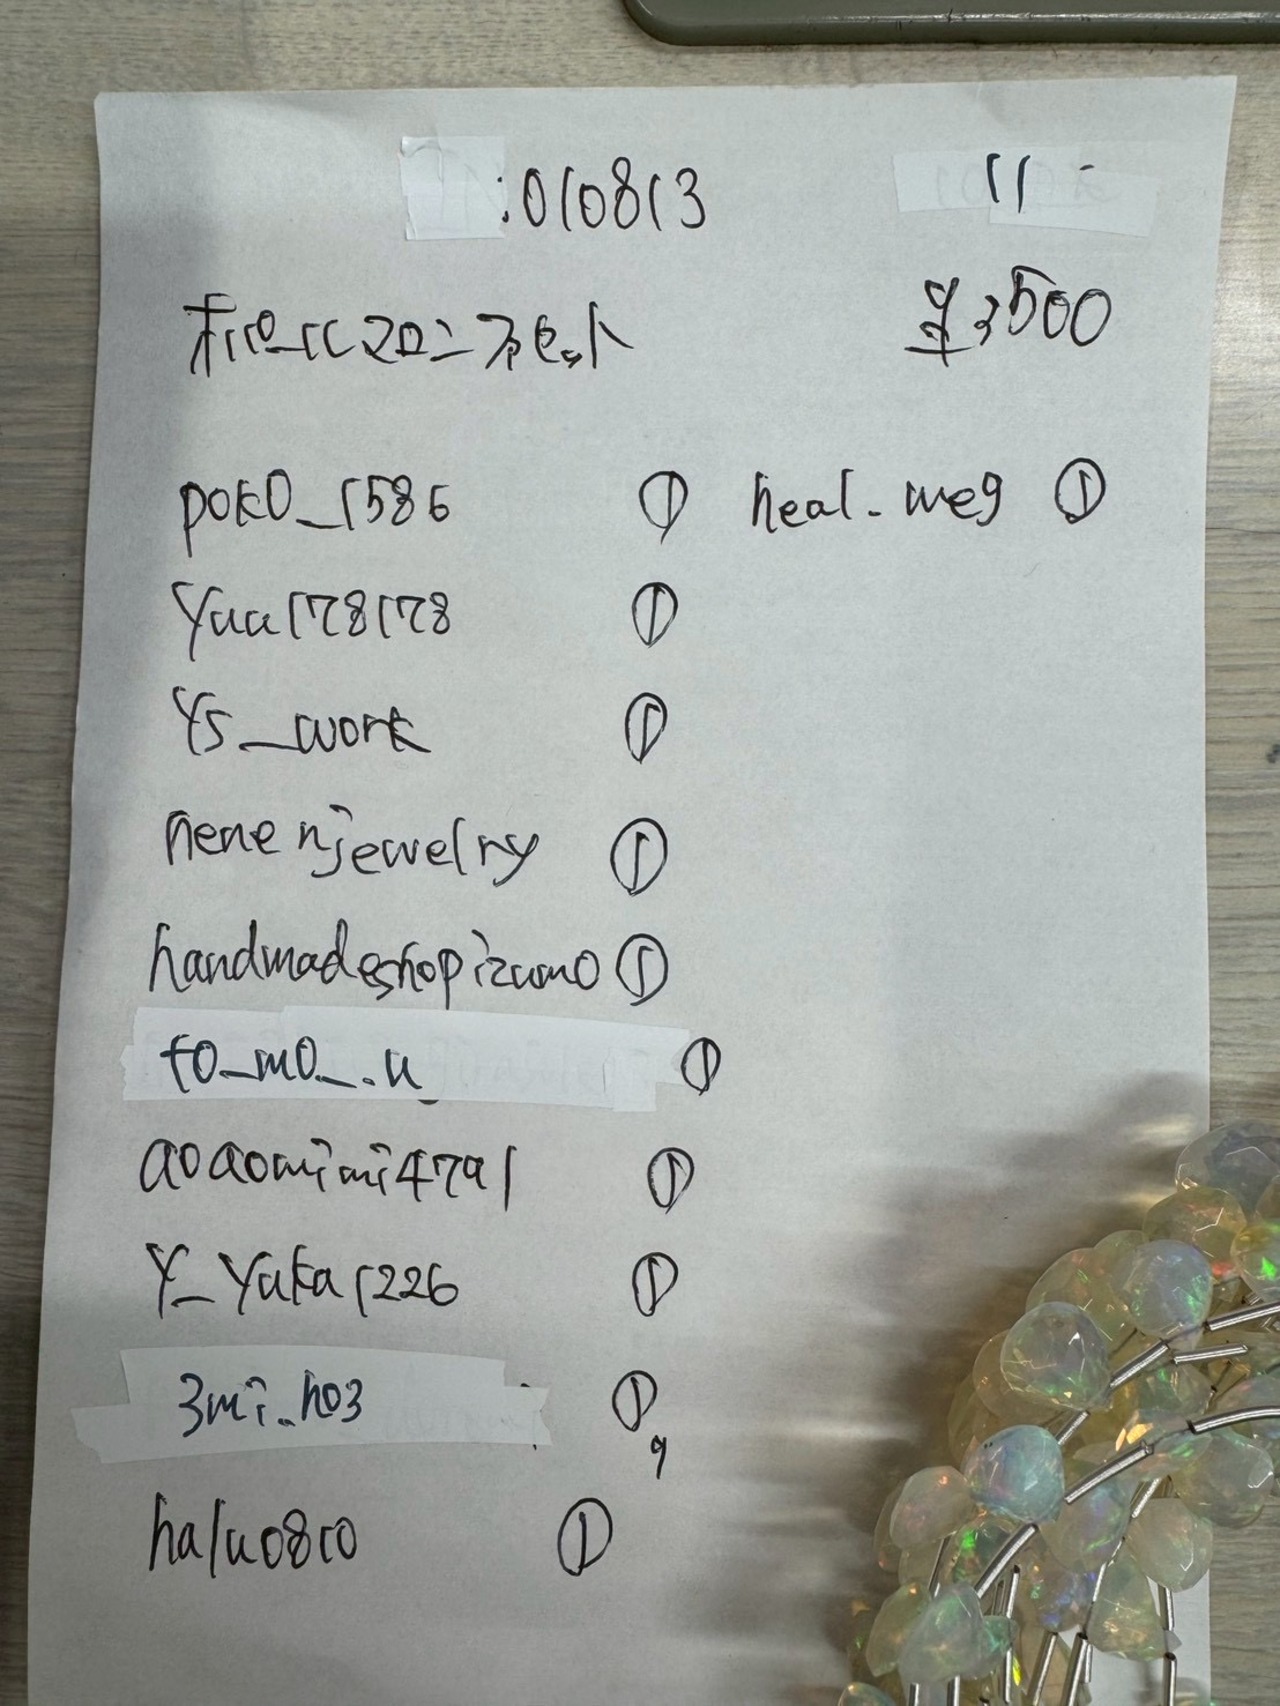 :010813
11
オパールマロン系セット
¥3500
poko_1586 ①
heal._meg ①
yuu178178 ①
Ys_work ①
nenenjewelry ①
handmadeshopizumo ①
to_mo_.u ①
aoaomimi4791 ①
Y_Yuka1226 ①
3mi_ho3 ①
9
halu0810 ①